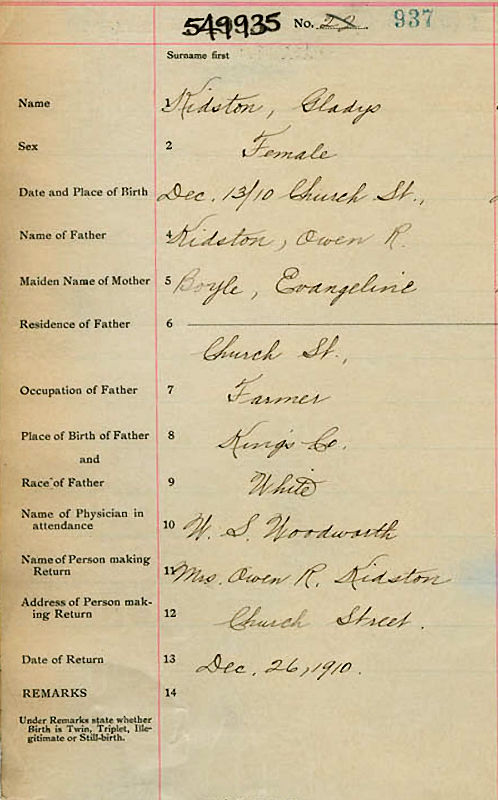 549935 No. 22 937
Surname first
Name 1 Kidston, Gladys
Sex 2 Female
Date and Place of Birth Dec. 13/10 Church St.,
Name of Father 4 Kidston, Owen R.
Maiden Name of Mother 5 Boyle, Evangeline
Residence of Father 6
Church St.,
Occupation of Father 7 Farmer
Place of Birth of Father 8 Kings Co.
and
Race of Father 9 White
Name of Physician in
attendance 10 W. S. Woodworth
Name of Person making
Return 11 Mrs. Owen R. Kidston
Address of Person mak-
ing Return 12 Church Street.
Date of Return 13 Dec. 26, 1910.
REMARKS 14
Under Remarks state whether
Birth is Twin, Triplet, Ille-
gitimate or Still-birth.